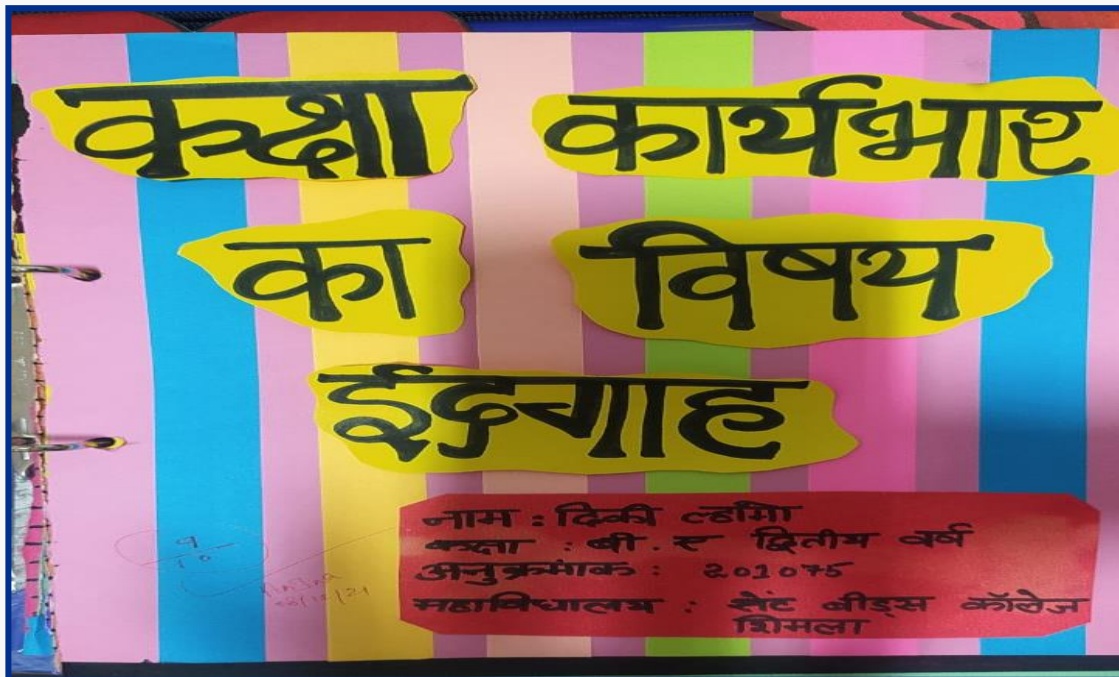 कक्षा कार्यभार
का विषय
ईदगाह
नाम : दिकी ल्हामो
कक्षा : बी. ए द्वितीय वर्ष
अनुक्रमांक : 201075
महाविधालय : सेंट बीड्स कॉलेज
शिमला
9
10